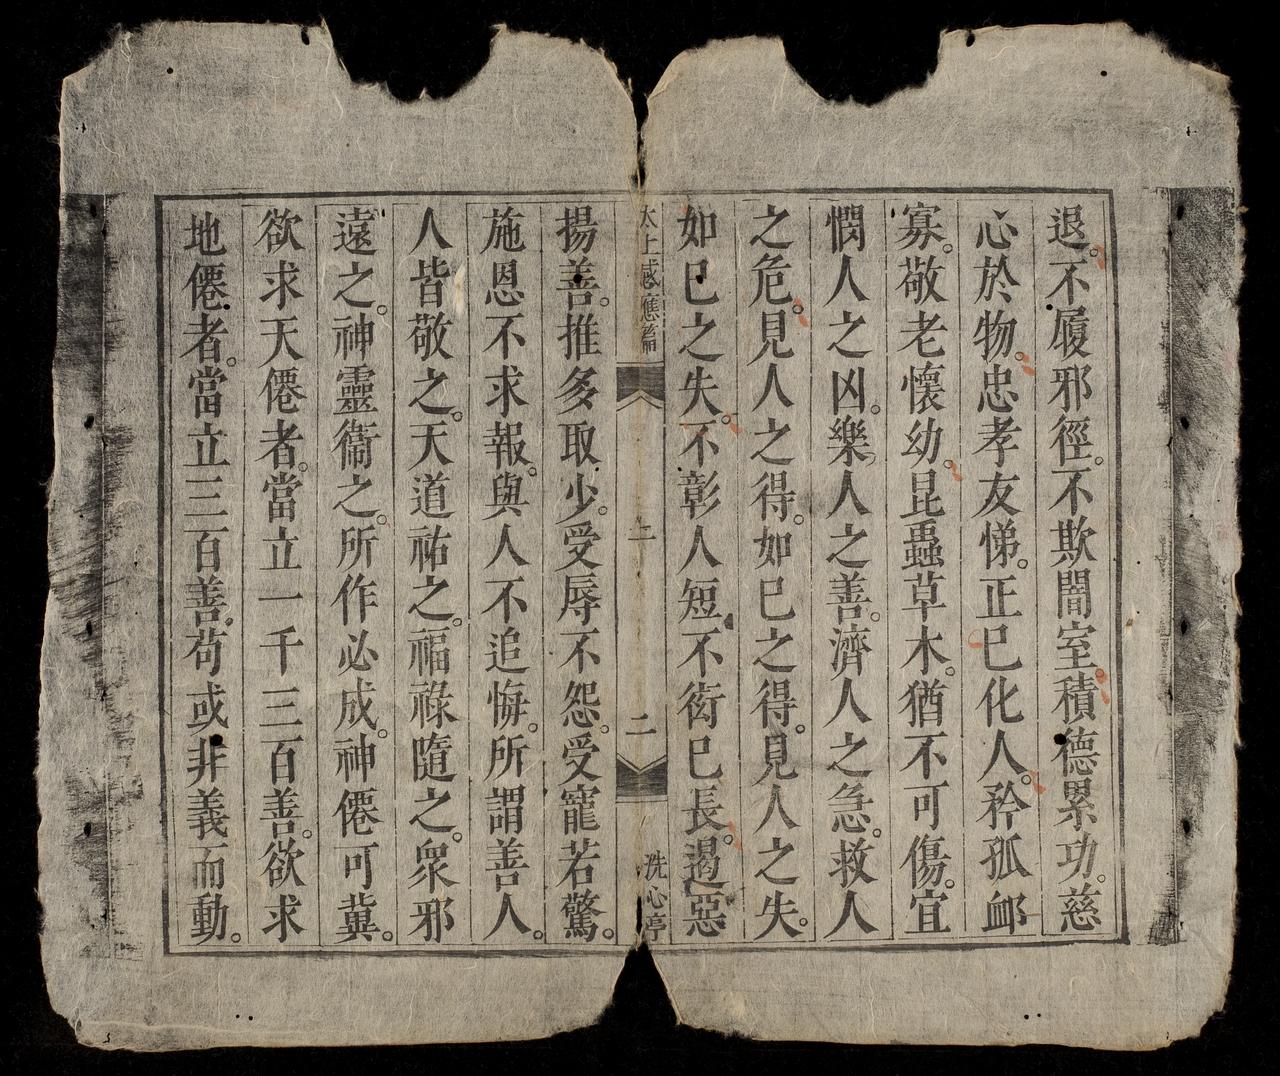 退。不履邪徑。不欺闇室。積德累功。慈
心於物。忠孝友悌。正己化人。矜孤卹
寡。敬老懷幼。昆蟲草木。猶不可傷。宜
憫人之凶。樂人之善。濟人之急。救人
之危。見人之得。如己之得。見人之失。
如己之失。不彰人短。不衒己長。遏惡
太上感應篇
上
二
洗心亭
揚善。推多取少。受辱不怨。受寵若驚。
施恩不求報。與人不追悔。所謂善人。
人皆敬之。天道祐之。福祿隨之。衆邪
遠之。神靈衞之。所作必成。神僊可冀。
欲求天僊者。當立一千三百善。欲求
地僊者。當立三百善。苟或非義而動。